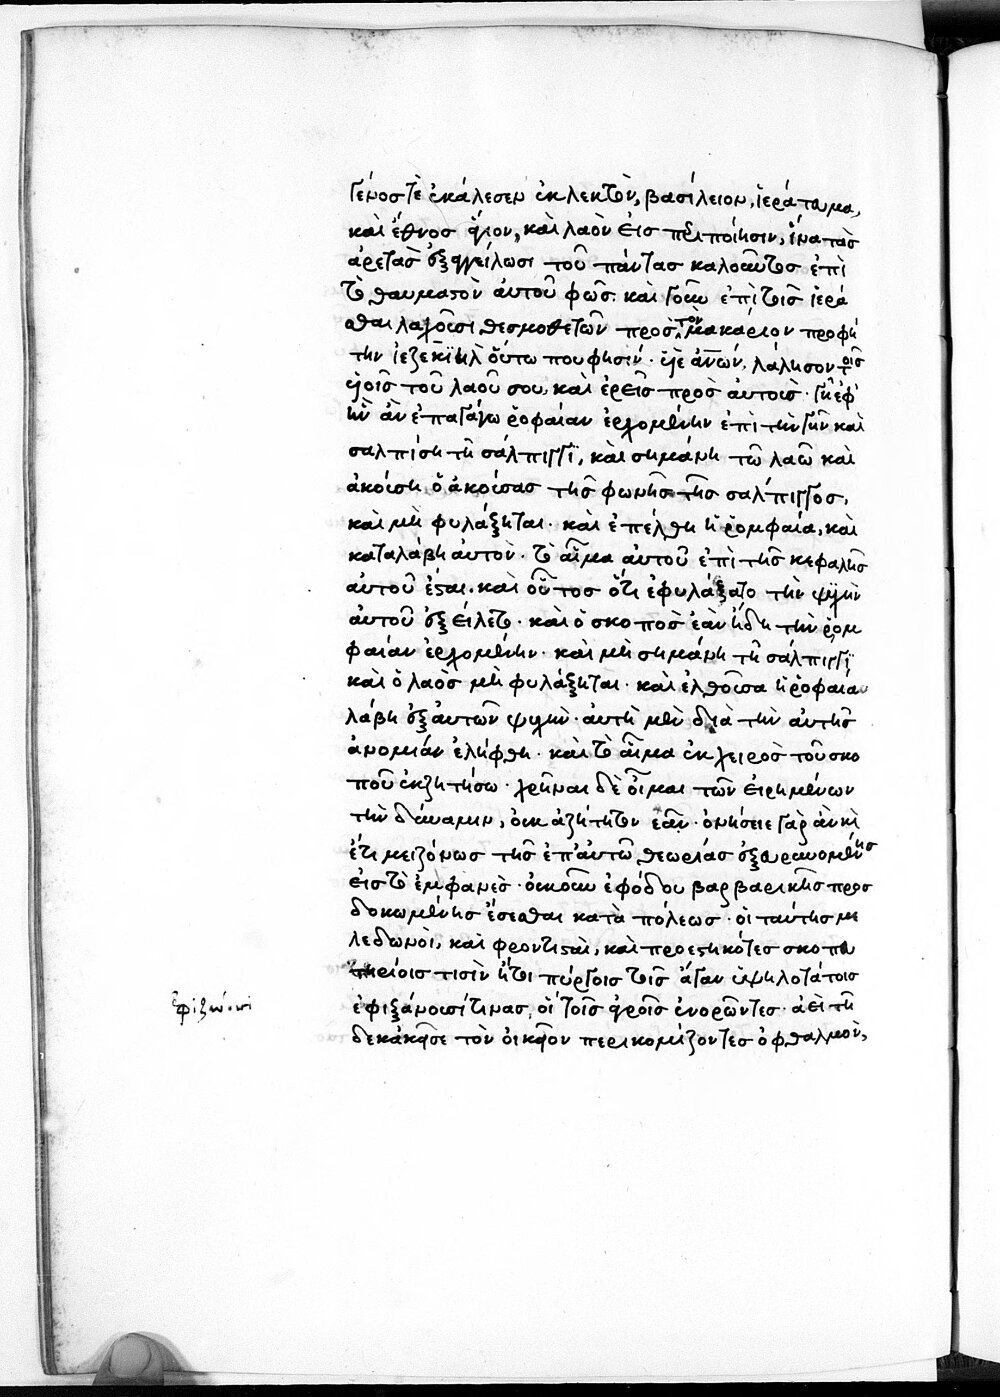 γένος τὲ ἐκάλεσεν ἐκλεκτὸν, βασίλειον, ἱεράτευμα,
καὶ ἔθνος ἅγιον, καὶ λαὸν εἰς περιποίησιν, ἵνα τὰς
ἀρετὰς ἐξαγγείλωσι τοῦ πάντας καλοῦντος ἐπὶ
τὸ θαυμαστὸν αὐτοῦ φῶς. καὶ γοῦν ἐπὶ τοῖς ἱερᾶ
σθαι λαχοῦσι θεσμοθετῶν πρὸς τὸν μακάριον προφή
την ἰεζεκϊὴλ οὕτω που φησίν · υἱὲ ἀνων, λάλησον τοῖς
υἱοῖς τοῦ λαοῦ σου, καὶ ἐρεῖς πρὸς αὐτοὺς · γῆ ἐφ'
ἣν ἂν ἐπαγάγω ῥομφαίαν ἐρχομένην ἐπὶ τὴν γῆν καὶ
σαλπίση τῆ σάλπιγγϊ, καὶ σημάνη τῶ λαῶ καὶ
ἀκούση ὁ ἀκούσας τῆς φωνῆς τῆς σάλπιγγος,
καὶ μὴ φυλάξηται · καὶ ἐπέλθη ἡ ῥομφαία, καὶ
καταλάβη αὐτὸν · τὸ αἷμα αὐτοῦ ἐπὶ τῆς κεφαλῆς
αὐτοῦ ἔσται. καὶ οὗτος ὅτι ἐφυλάξατο τὴν ψυχὴν
αὐτοῦ ἐξείλετο · καὶ ὁ σκοπὸς ἐὰν ἴδη τὴν ῥομ
φαίαν ἐρχομένην · καὶ μὴ σημάνη τῆ σάλπιγγϊ
καὶ ὁ λαὸς μὴ φυλάξηται · καὶ ἐλθοῦσα ἡ ῥομφαία
λάβη ἐξ αὐτῶν ψυχὴν · αὐτὴ μὲν διὰ τὴν αὐτῆς
ἀνομίαν ἐλήφθη · καὶ τὸ αἷμα ἐκ χειρὸς τοῦ σκο
ποῦ ἐκζητήσω · χρῆναι δὲ οἶμαι τῶν εἰρημένων
τὴν δύναμιν, οὐκ ἀζήτητον ἐᾶν · ὀνήσειε γὰρ ἂν καὶ
ἔτι μειζόνως τῆς ἐπ' αὐτῶ θεωρίας ἐξευρυνομένης
εἰς τὸ ἐμφανὲς · οὐκοῦν ἐφόδου βαρβαρικῆς προς
δοκωμένης ἔσεσθαι κατὰ πόλεως · οἱ ταύτης με
λεδωνοὶ, καὶ φροντισταὶ, καὶ προεστηκότες σκοπευ
τηρίοις τισὶν ἤτι πύργοις τοῖς ἄγαν ὑψηλοτάτοις
ἐφιζάνουσί τινας, οἳ τοῖς ἀγροῖς ἐνορῶντες · ἀεὶ τῆ
δε κἀκεῖσε τὸν οἰκεῖον περικομίζοντες ὀφθαλμὸν,